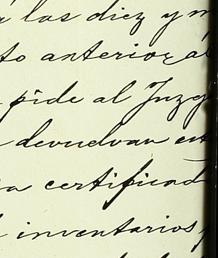 las diez y m
to anterior al
pide al Juzg
devuelvan est
a certificad
inventarios,